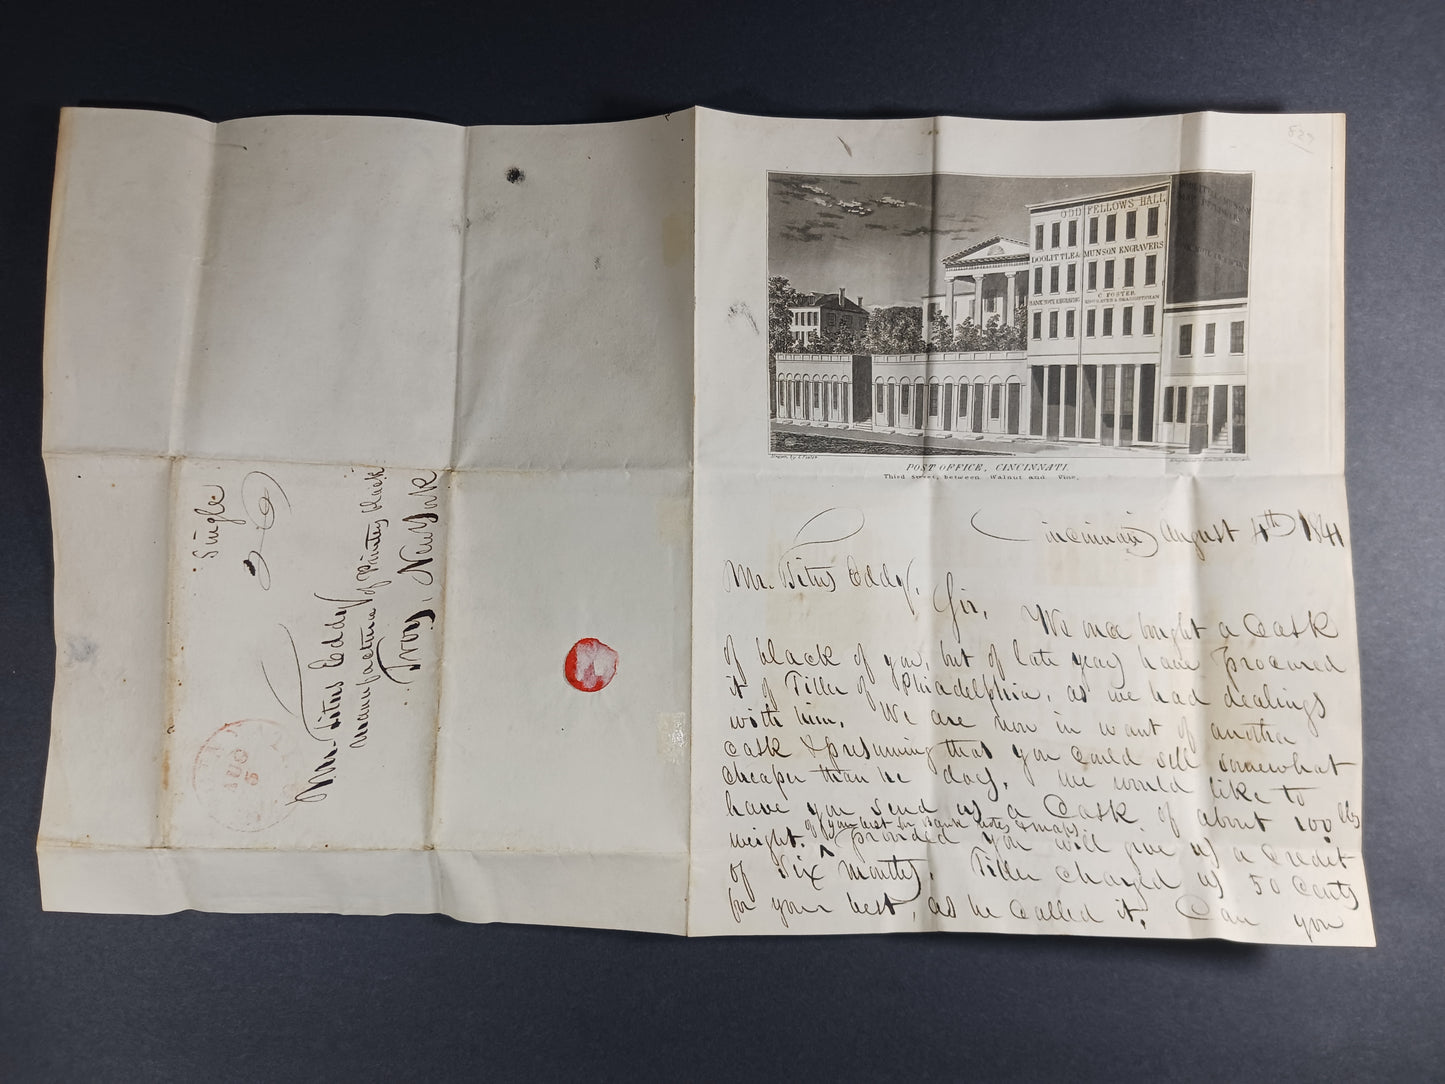 Single
Mr. Titus Eddy
Manufacturer of Printing Black
Troy, New York
AUG
5
829
ODD FELLOWS HALL
DOOLITTLE & MUNSON ENGRAVERS
BANK NOTE ENGRAVING
C FOSTER
ENGRAVER & DRAUGHTSMAN
Drawn by C. Foster
POST OFFICE, CINCINNATI.
Third street, between Walnut and Vine.
Cincinnati August 4th 1841
Mr. Titus Eddy,
Sir, We once bought a Cask
of black of you, but of late years have procured
it of Tiller of Philadelphia, as we had dealings
with him. We are now in want of another
Cask & presuming that you could sell somewhat
cheaper than he does, we would like to
have you send us a Cask of about 100 lbs
of your best for Bank Notes & maps
weight. ^ provided you will give us a credit
of Six months. Tiller charged us 50 Cents
for your best, as he called it. Can you